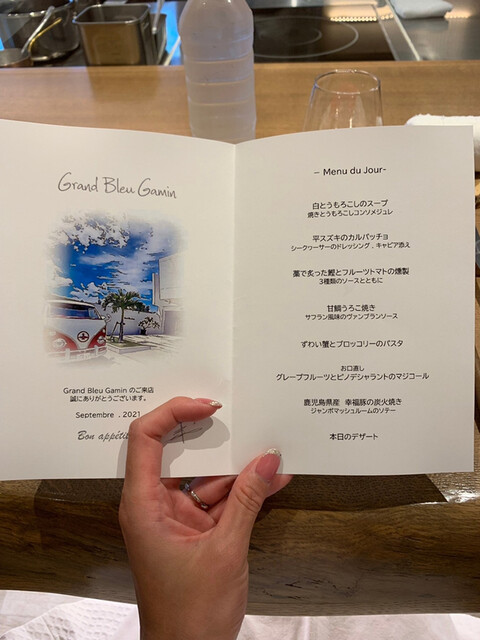 Grand Bleu Gamin
Grand Bleu Gamin のご来店
誠にありがとうございます。
Septembre . 2021
Bon appétit
– Menu du Jour–
白とうもろこしのスープ
焼きとうもろこしコンソメジュレ
平スズキのカルパッチョ
シークヮーサーのドレッシング．キャビア添え
藁で炙った鰹とフルーツトマトの燻製
3種類のソースとともに
甘鯛うろこ焼き
サフラン風味のヴァンブランソース
ずわい蟹とブロッコリーのパスタ
お口直し
グレープフルーツとピノデシャラントのマジコール
鹿児島県産 幸福豚の炭火焼き
ジャンボマッシュルームのソテー
本日のデザート